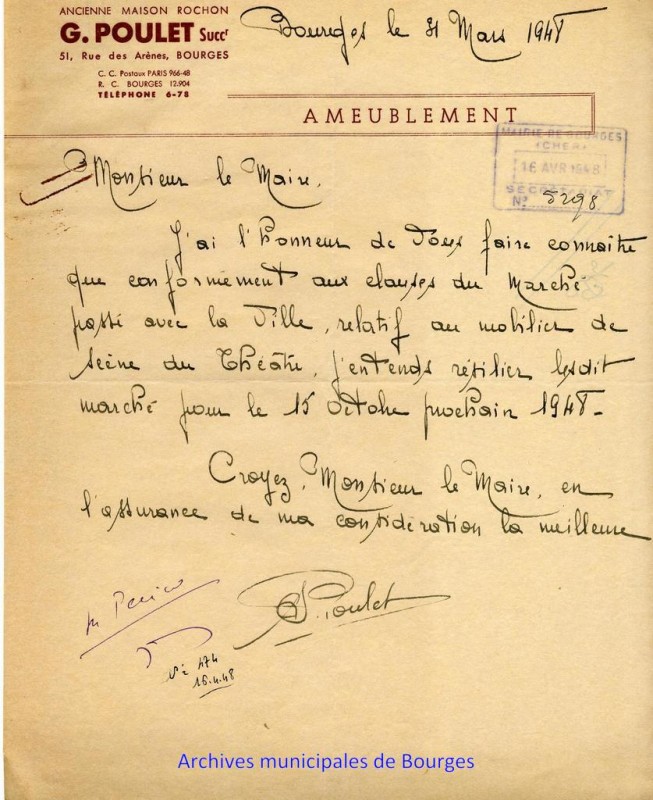 ANCIENNE MAISON ROCHON
G. POULET Succr
51, Rue des Arènes, BOURGES
C. C. Postaux PARIS 966-48
R. C. BOURGES 12.904
TÉLÉPHONE 6-78
Bourges le 31 Mars 1948
AMEUBLEMENT
MAIRIE DE BOURGES
(CHER)
16 AVR 1948
SECRÉTARIAT
N° 5298
Monsieur le Maire,
J'ai l'honneur de Vous faire connaître
que conformément aux clauses du Marché
passé avec la Ville, relatif au mobilier de
scène du Théâtre, j'entends résilier lesdit
marché pour le 15 Octobre prochain 1948-
Croyez, Monsieur le Maire, en
l'assurance de ma considération la meilleure
G. Poulet
474
16.4.48
Archives municipales de Bourges